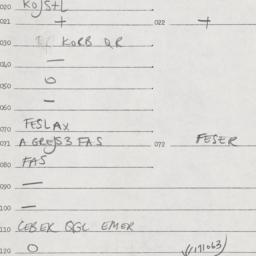 020 KOJS+L
021 + 022 +
030 KORB QR
040 —
050 O
060 —
070 FESLAX
071 A GREJS3 FAS 072 FESER
080 FAS
090 —
100 —
110 CEBEK QGC EMER
120 O (171063)